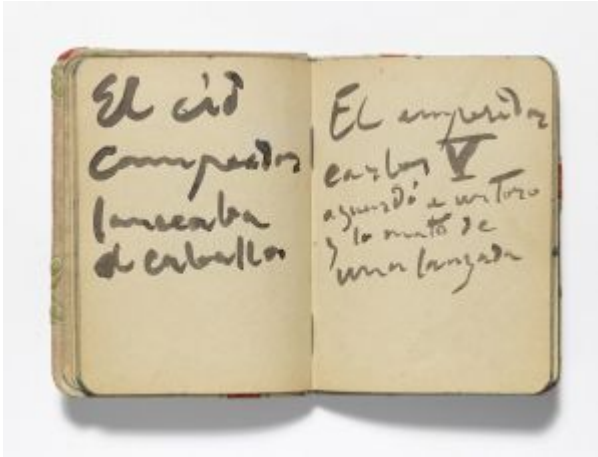 El cid
Campeador
lanceaba
a caballo
El emperador
Carlos V
aguardó a un toro
y lo mató de
una lanzada